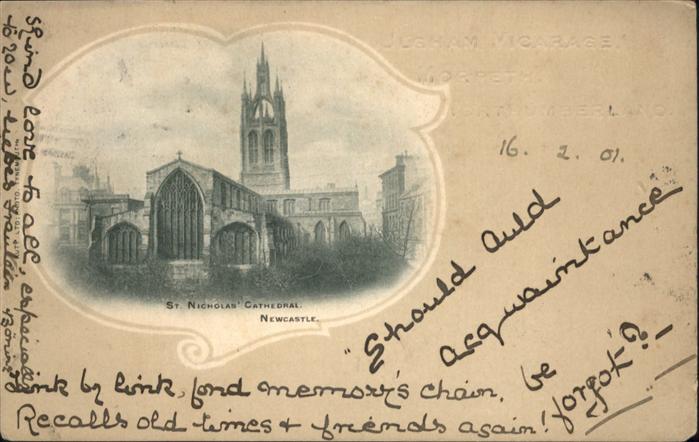 ULGHAM VICARAGE,
MORPETH,
NORTHUMBERLAND.
16. 2. 01.
ST. NICHOLAS' CATHEDRAL.
NEWCASTLE.
"Should Auld
acquaintance
be
forgot"?
Link by link, fond memory's chain,
Recalls old times & friends again!
love to all, especially
to you, liebes Fräulein